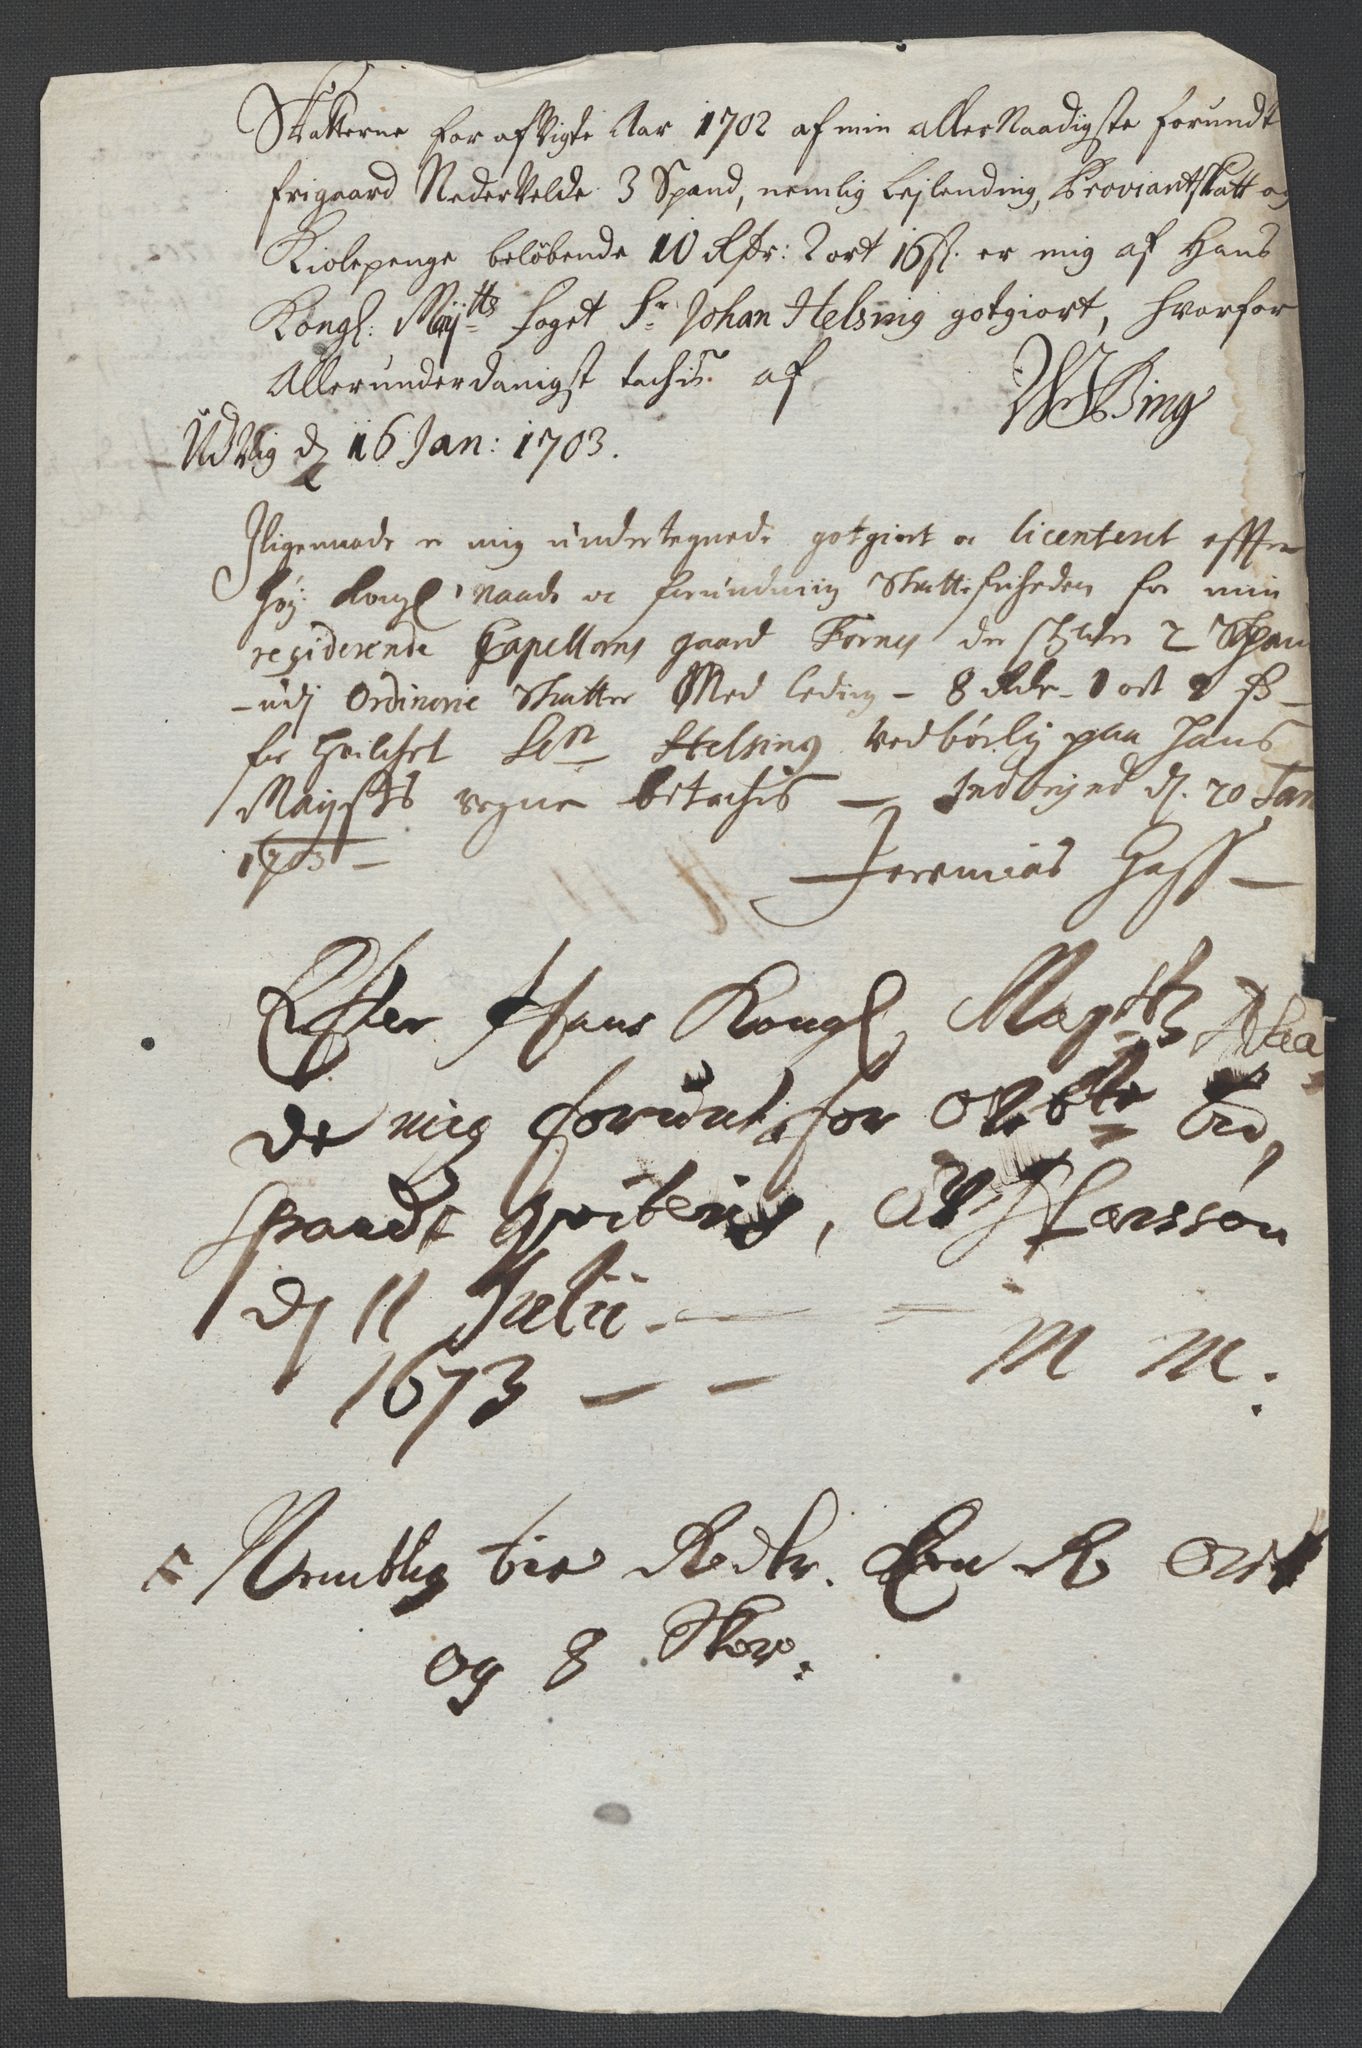 Skatterne for afvigte Aar 1702 af min allernaadigste forundt
frigaard Nedervelde 3 Spand, nemlig Lejlending, Proviantskatt og
Kiolepenge beløbende 10 Rdr: 2 ort 16 ß. er mig af Hans
Kongl: Maytts foget Sr Johan Helsing gotgiort, hvorfor
Allerunderdanigst tachis af
Bing
Udvig d 16 Jan: 1703.
Iligemaade er mig undertegnede gotgiort oc licenteret effter
høy Kongl naade oc forundning Skattefriheden for min
residerende Capellans gaard Fornes der schylder 2 Span
udj Ordinarie Skatter Med leding - 8 Rdr - 1 ort ß -
for hvilchet Sr Helsing vedbørlig paa hans
Maysts vegne betachis - Inderøyen d. 20 Jan
1703 -
Jeremias Hass -
Efter Hans Kongl Maytts Naa
de mig forunt for
spandt qviteris, Larssøn
dj 11 Julii -
1673 - - M M.
Nemblig tie Rdr. Een R Ort
og 8 Skor.